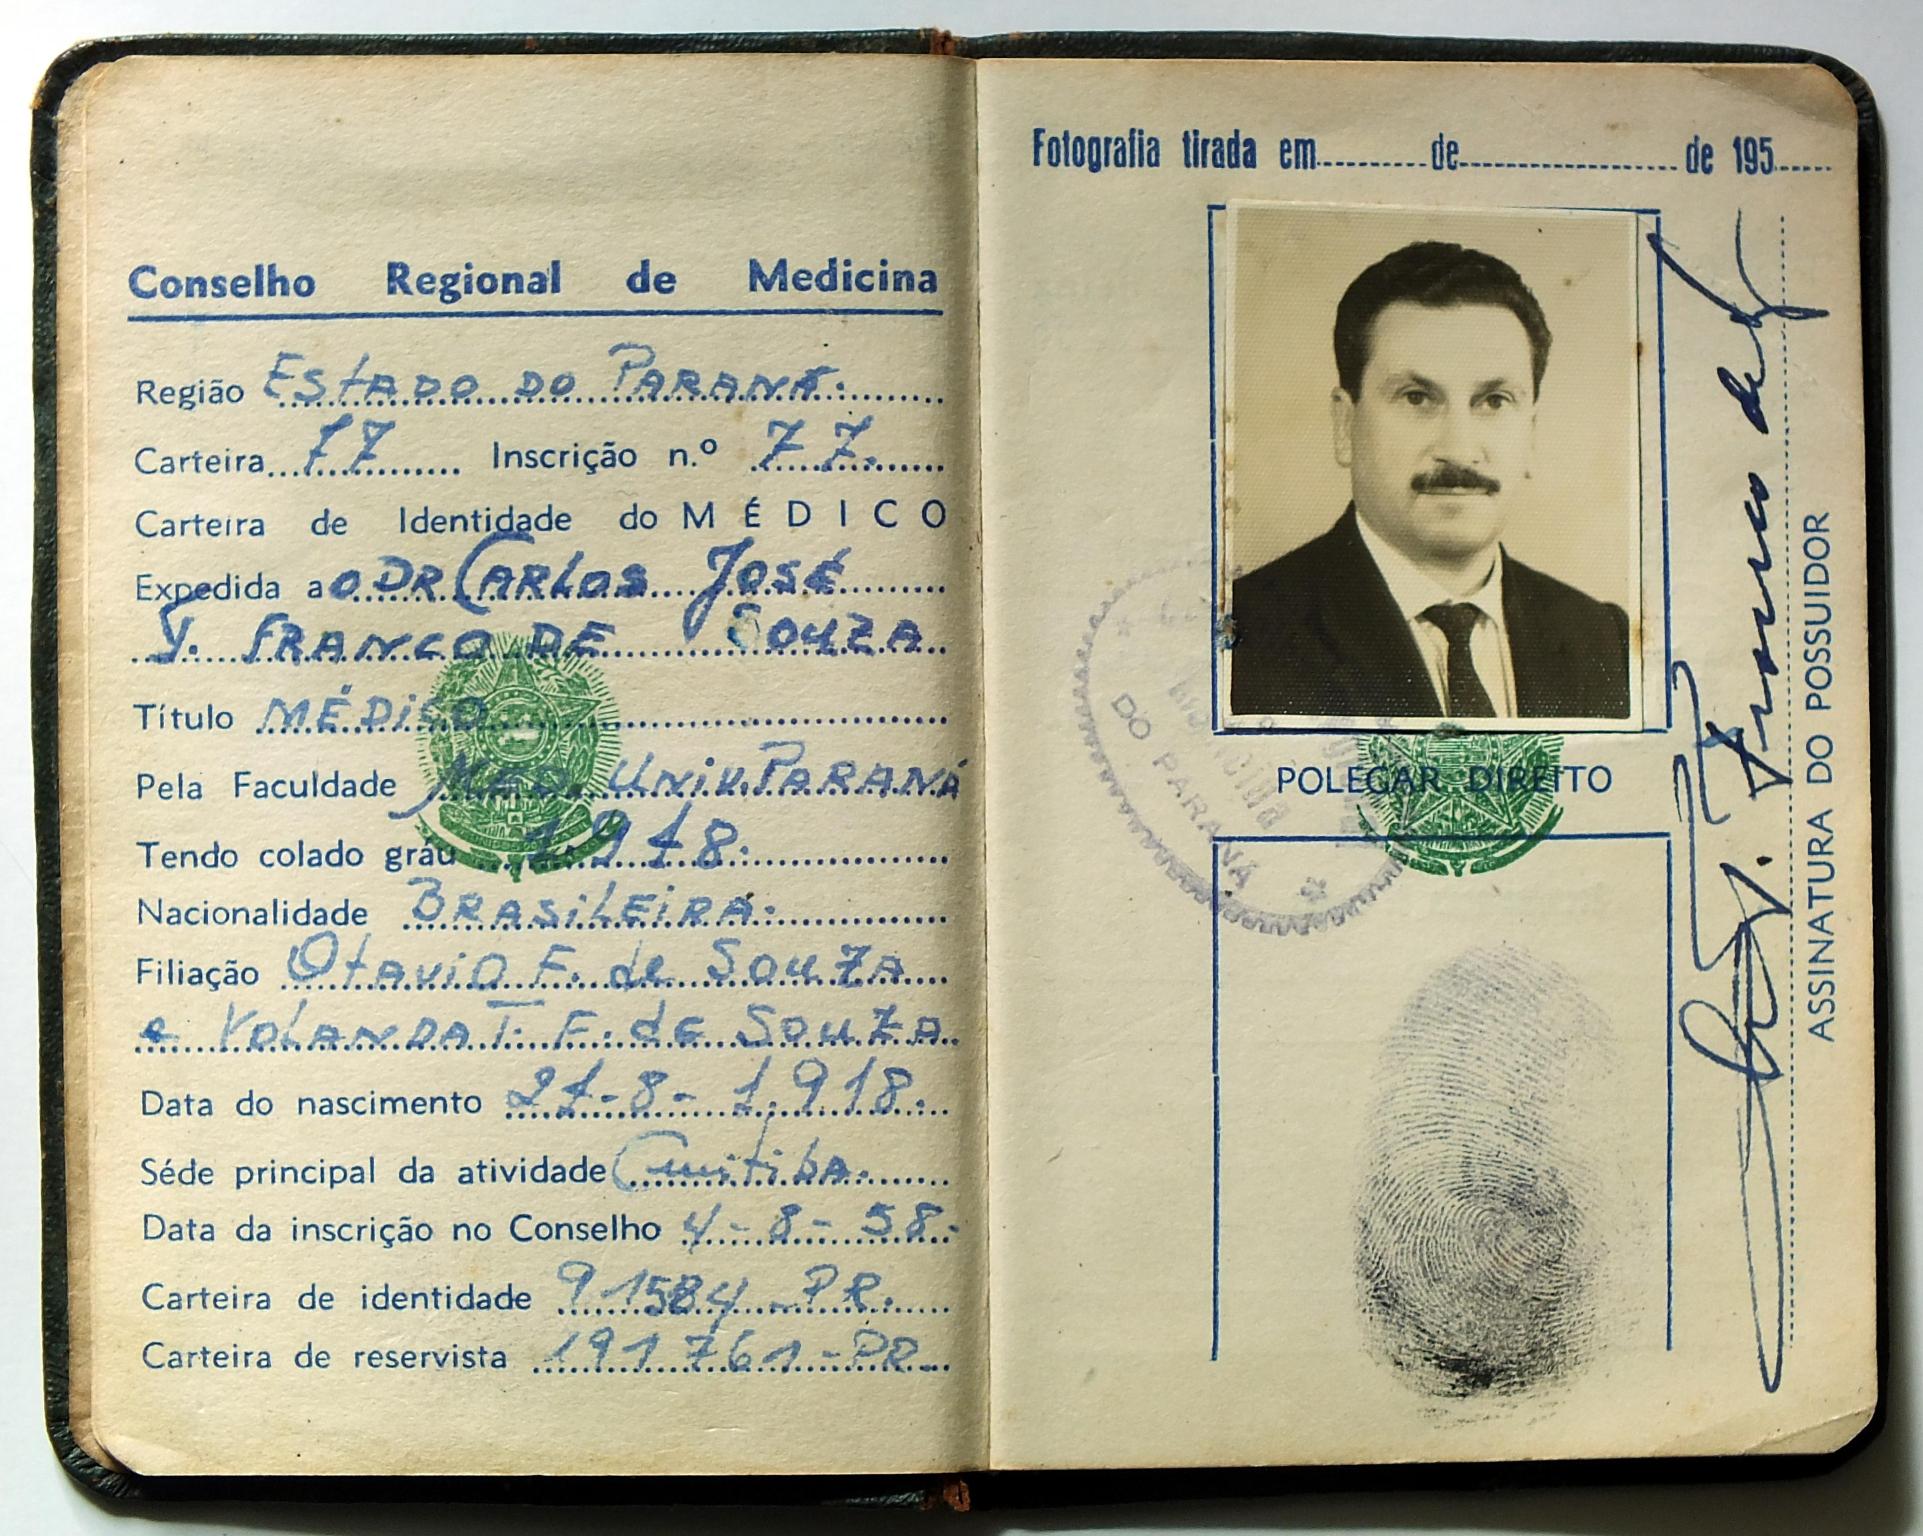 Conselho Regional de Medicina
Região ESTADO DO PARANÁ.
Carteira 77 Inscrição n.º 77.
Carteira de Identidade do MÉDICO
Expedida ao DR CARLOS JOSÉ
F. FRANCO DE SOUZA
Título MÉDICO
Pela Faculdade MED. UNIV. PARANÁ
Tendo colado gráu
Nacionalidade BRASiLEiRA.
Filiação OTAVIO F. de SOUZA
e YOLANDA T. F. de SOUZA.
Data do nascimento 21-8-1.918.
Séde principal da atividade Curitiba.
Data da inscrição no Conselho 4-8-58.
Carteira de identidade 91584-PR.
Carteira de reservista 191761-PR
Fotografia tirada em de de 195
POLEGAR DIREITO
DO PARANÁ
ASSINATURA DO POSSUIDOR